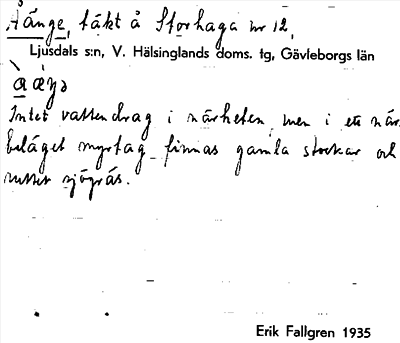 Åänge, täkt å Storhaga nr 12,
Ljusdals s:n, V. Hälsinglands doms. tg, Gävleborgs län
Intet vattendrag i närheten, men i ett när-
beläget myrtag finnas gamla stockar och
ruttet sjögräs.
Erik Fallgren 1935